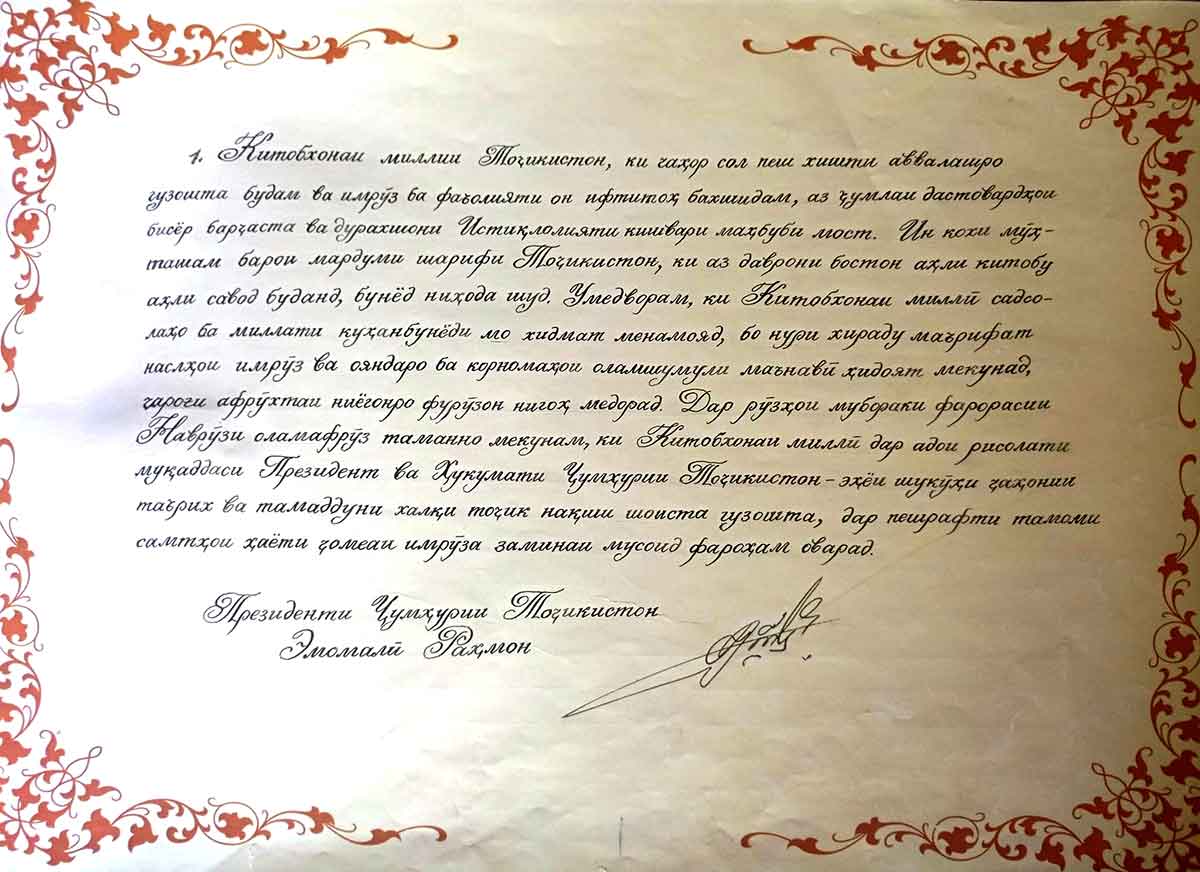 1. Китобхонаи миллии Тоҷикистон, ки чаҳор сол пеш хишти аввалашро
гузошта будам ва имрӯз ба фаъолияти он ифтитоҳ бахшидам, аз ҷумлаи дастовардҳои
бисёр барҷаста ва дурахшони Истиқлолияти кишвари маҳбуби мост. Ин кохи мӯҳ-
ташам барои мардуми шарифи Тоҷикистон, ки аз даврони бостон аҳли китобу
аҳли савод буданд, бунёд ниҳода шуд. Умедворам, ки Китобхонаи миллӣ садсо-
лаҳо ба миллати куҳанбунёди мо хидмат менамояд, бо нури хираду маърифат
наслҳои имрӯз ва ояндаро ба корномаҳои оламшумули маънавӣ ҳидоят мекунад,
чароғи афрӯхтаи ниёгонро фурӯзон нигоҳ медорад. Дар рӯзҳои мубораки фарорасии
Наврӯзи оламафрӯз таманно мекунам, ки Китобхонаи миллӣ дар адои рисолати
муқаддаси Президент ва Ҳукумати Ҷумҳурии Тоҷикистон – эҳёи шукӯҳи ҷаҳонии
таърих ва тамаддуни халқи тоҷик нақши шоиста гузошта, дар пешрафти тамоми
самтҳои ҳаёти ҷомеаи имрӯза заминаи мусоид фароҳам оварад.
Президенти Ҷумҳурии Тоҷикистон
Эмомалӣ Раҳмон